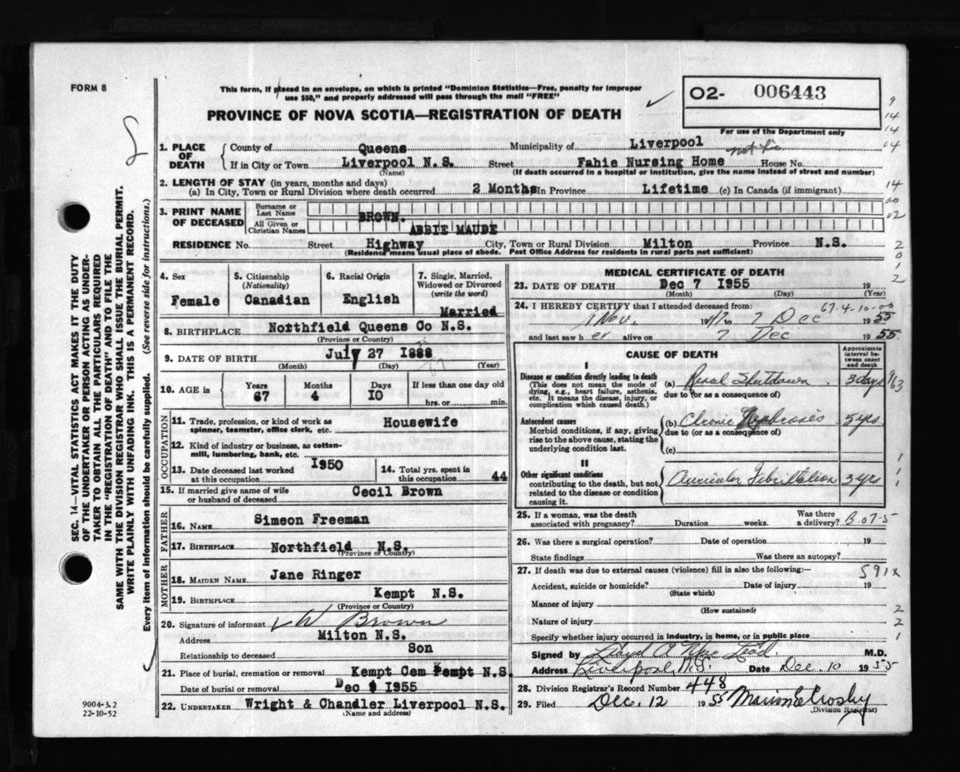 FORM 8
This form, if placed in an envelope, on which is printed "Dominion Statistics—Free, penalty for improper
use $50," and properly addressed will pass through the mail "FREE"
O2- 006443
For use of the Department only
PROVINCE OF NOVA SCOTIA—REGISTRATION OF DEATH
1. PLACE OF DEATH County of Queens Municipality of Liverpool
If in City or Town Liverpool N.S. Street Fahie Nursing Home House No.
(Name) (If death occurred in a hospital or institution, give the name instead of street and number)
2. LENGTH OF STAY (in years, months and days)
(a) In City, Town or Rural Division where death occurred 2 Months In Province Lifetime (c) In Canada (if immigrant)
3. PRINT NAME OF DECEASED Surname or Last Name BROWN.
All Given or Christian Names ABBIE MAUDE
RESIDENCE No. Street Highway City, Town or Rural Division Milton Province N.S.
(Residence means usual place of abode. Post Office Address for residents in rural parts not sufficient)
4. Sex Female
5. Citizenship (Nationality) Canadian
6. Racial Origin English
7. Single, Married, Widowed or Divorced (write the word) Married
8. BIRTHPLACE Northfield Queens Co N.S.
(Province or Country)
9. DATE OF BIRTH July 27 1888
(Month) (Day) (Year)
10. AGE in Years 67 Months 4 Days 10 If less than one day old hrs. or min.
OCCUPATION
11. Trade, profession, or kind of work as spinner, teamster, office clerk, etc. Housewife
12. Kind of industry or business, as cotton-mill, lumbering, bank, etc.
13. Date deceased last worked at this occupation 1950
14. Total yrs. spent in this occupation 44
15. If married give name of wife or husband of deceased Cecil Brown
FATHER
16. NAME Simeon Freeman
17. BIRTHPLACE Northfield N.S.
(Province or Country)
MOTHER
18. MAIDEN NAME Jane Ringer
19. BIRTHPLACE Kempt N.S.
(Province or Country)
20. Signature of informant W Brown
Address Milton N.S.
Relationship to deceased Son
21. Place of burial, cremation or removal Kempt Cem Kempt N.S.
Date of burial or removal Dec 9 1955
22. UNDERTAKER Wright & Chandler Liverpool N.S.
(Name and address)
MEDICAL CERTIFICATE OF DEATH
23. DATE OF DEATH Dec 7 1955
(Month) (Day) (Year)
24. I HEREBY CERTIFY that I attended deceased from: 67-4-10-00
1 Nov. to 7 Dec 1955
and last saw her alive on 7 Dec 1955
CAUSE OF DEATH
Approximate interval between onset and death
I
Disease or condition directly leading to death (a) Renal Shutdown 3 days
(This does not mean the mode of dying, e.g., heart failure, asthenia, etc. It means the disease, injury, or complication which caused death.) due to (or as a consequence of)
Antecedent causes (b) Chronic Nephrosis 5 yrs
Morbid conditions, if any, giving rise to the above cause, stating the underlying condition last. due to (or as a consequence of)
(c)
II
Other significant conditions contributing to the death, but not related to the disease or condition causing it. Auricular Fibrillation 3 yrs
25. If a woman, was the death associated with pregnancy? Duration weeks. Was there a delivery?
26. Was there a surgical operation? Date of operation 19
State findings Was there an autopsy?
27. If death was due to external causes (violence) fill in also the following:— 591x
Accident, suicide or homicide? Date of injury 19
(State which)
Manner of injury
(How sustained)
Nature of injury
Specify whether injury occurred in industry, in home, or in public place
Signed by M.D.
Address Liverpool, N.S. Date Dec. 10 1955
28. Division Registrar's Record Number 448
29. Filed Dec. 12 1955 Marion E Crosby
(Division Registrar)
SEC. 14—VITAL STATISTICS ACT MAKES IT THE DUTY
OF THE UNDERTAKER OR PERSON ACTING AS UNDER-
TAKER TO OBTAIN ALL THE PARTICULARS REQUIRED
IN THE "REGISTRATION OF DEATH" AND TO FILE THE
SAME WITH THE DIVISION REGISTRAR WHO SHALL ISSUE THE BURIAL PERMIT.
WRITE PLAINLY WITH UNFADING INK. THIS IS A PERMANENT RECORD.
Every item of information should be carefully supplied. (See reverse side for instructions.)
9004-3.2
22-10-52